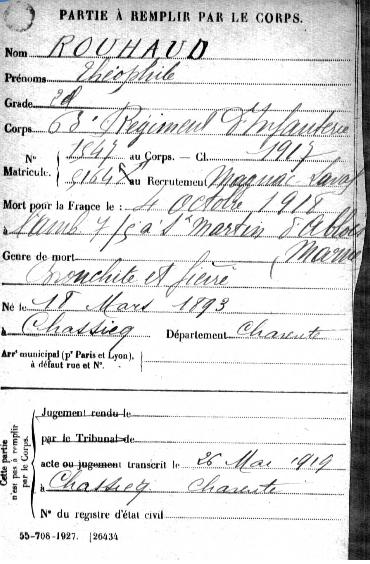 PARTIE À REMPLIR PAR LE CORPS.
Nom ROUHAUD
Prénoms Théophile
Grade 2d
Corps 63e Régiment d'Infanterie
N° 1547 au Corps. — Cl. 1917
Matricule. au Recrutement Magnac-Laval
Mort pour la France le : 4 octobre 1918
à l'amb 7/5 à St Martin d'Ablois
(Marne
Genre de mort
Bronchite et fièvre
Né le 18 Mars 1893
à Chassiecq Département Charente
Arrt municipal (pr Paris et Lyon),
à défaut rue et N°.
Cette partie
n'est pas à remplir
par le Corps.
Jugement rendu le
par le Tribunal de
acte ou jugement transcrit le 26 Mai 1919
à Chassiecq Charente
N° du registre d'état civil
55-708-1927. [26434